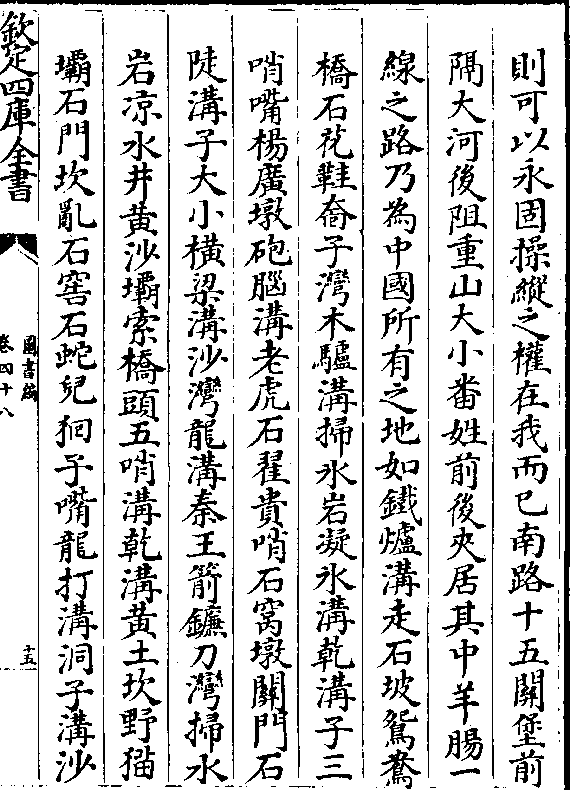 則可以永固操縱之權在我而已南路十五關堡前
隔大河後阻重山大小番姓前後夾居其中羊腸一
線之路乃為中國所有之地如鐵爐溝走石坡鴛鴦
橋石花鞋裔子灣木驢溝掃氷岩凝氷溝乾溝子三
哨嘴楊廣墩砲腦溝老虎石翟貴哨石窩墩關門石
陡溝子大小橫梁溝沙灣龍溝秦王箭鐮刀灣掃水
岩凉水井黄沙壩索橋頭五哨溝乾溝黄土坎野猫
壩石門坎亂石窖石蛇兒狪子嘴龍打溝洞子溝沙
欽定四庫全書
圖書編
卷四十八
十五